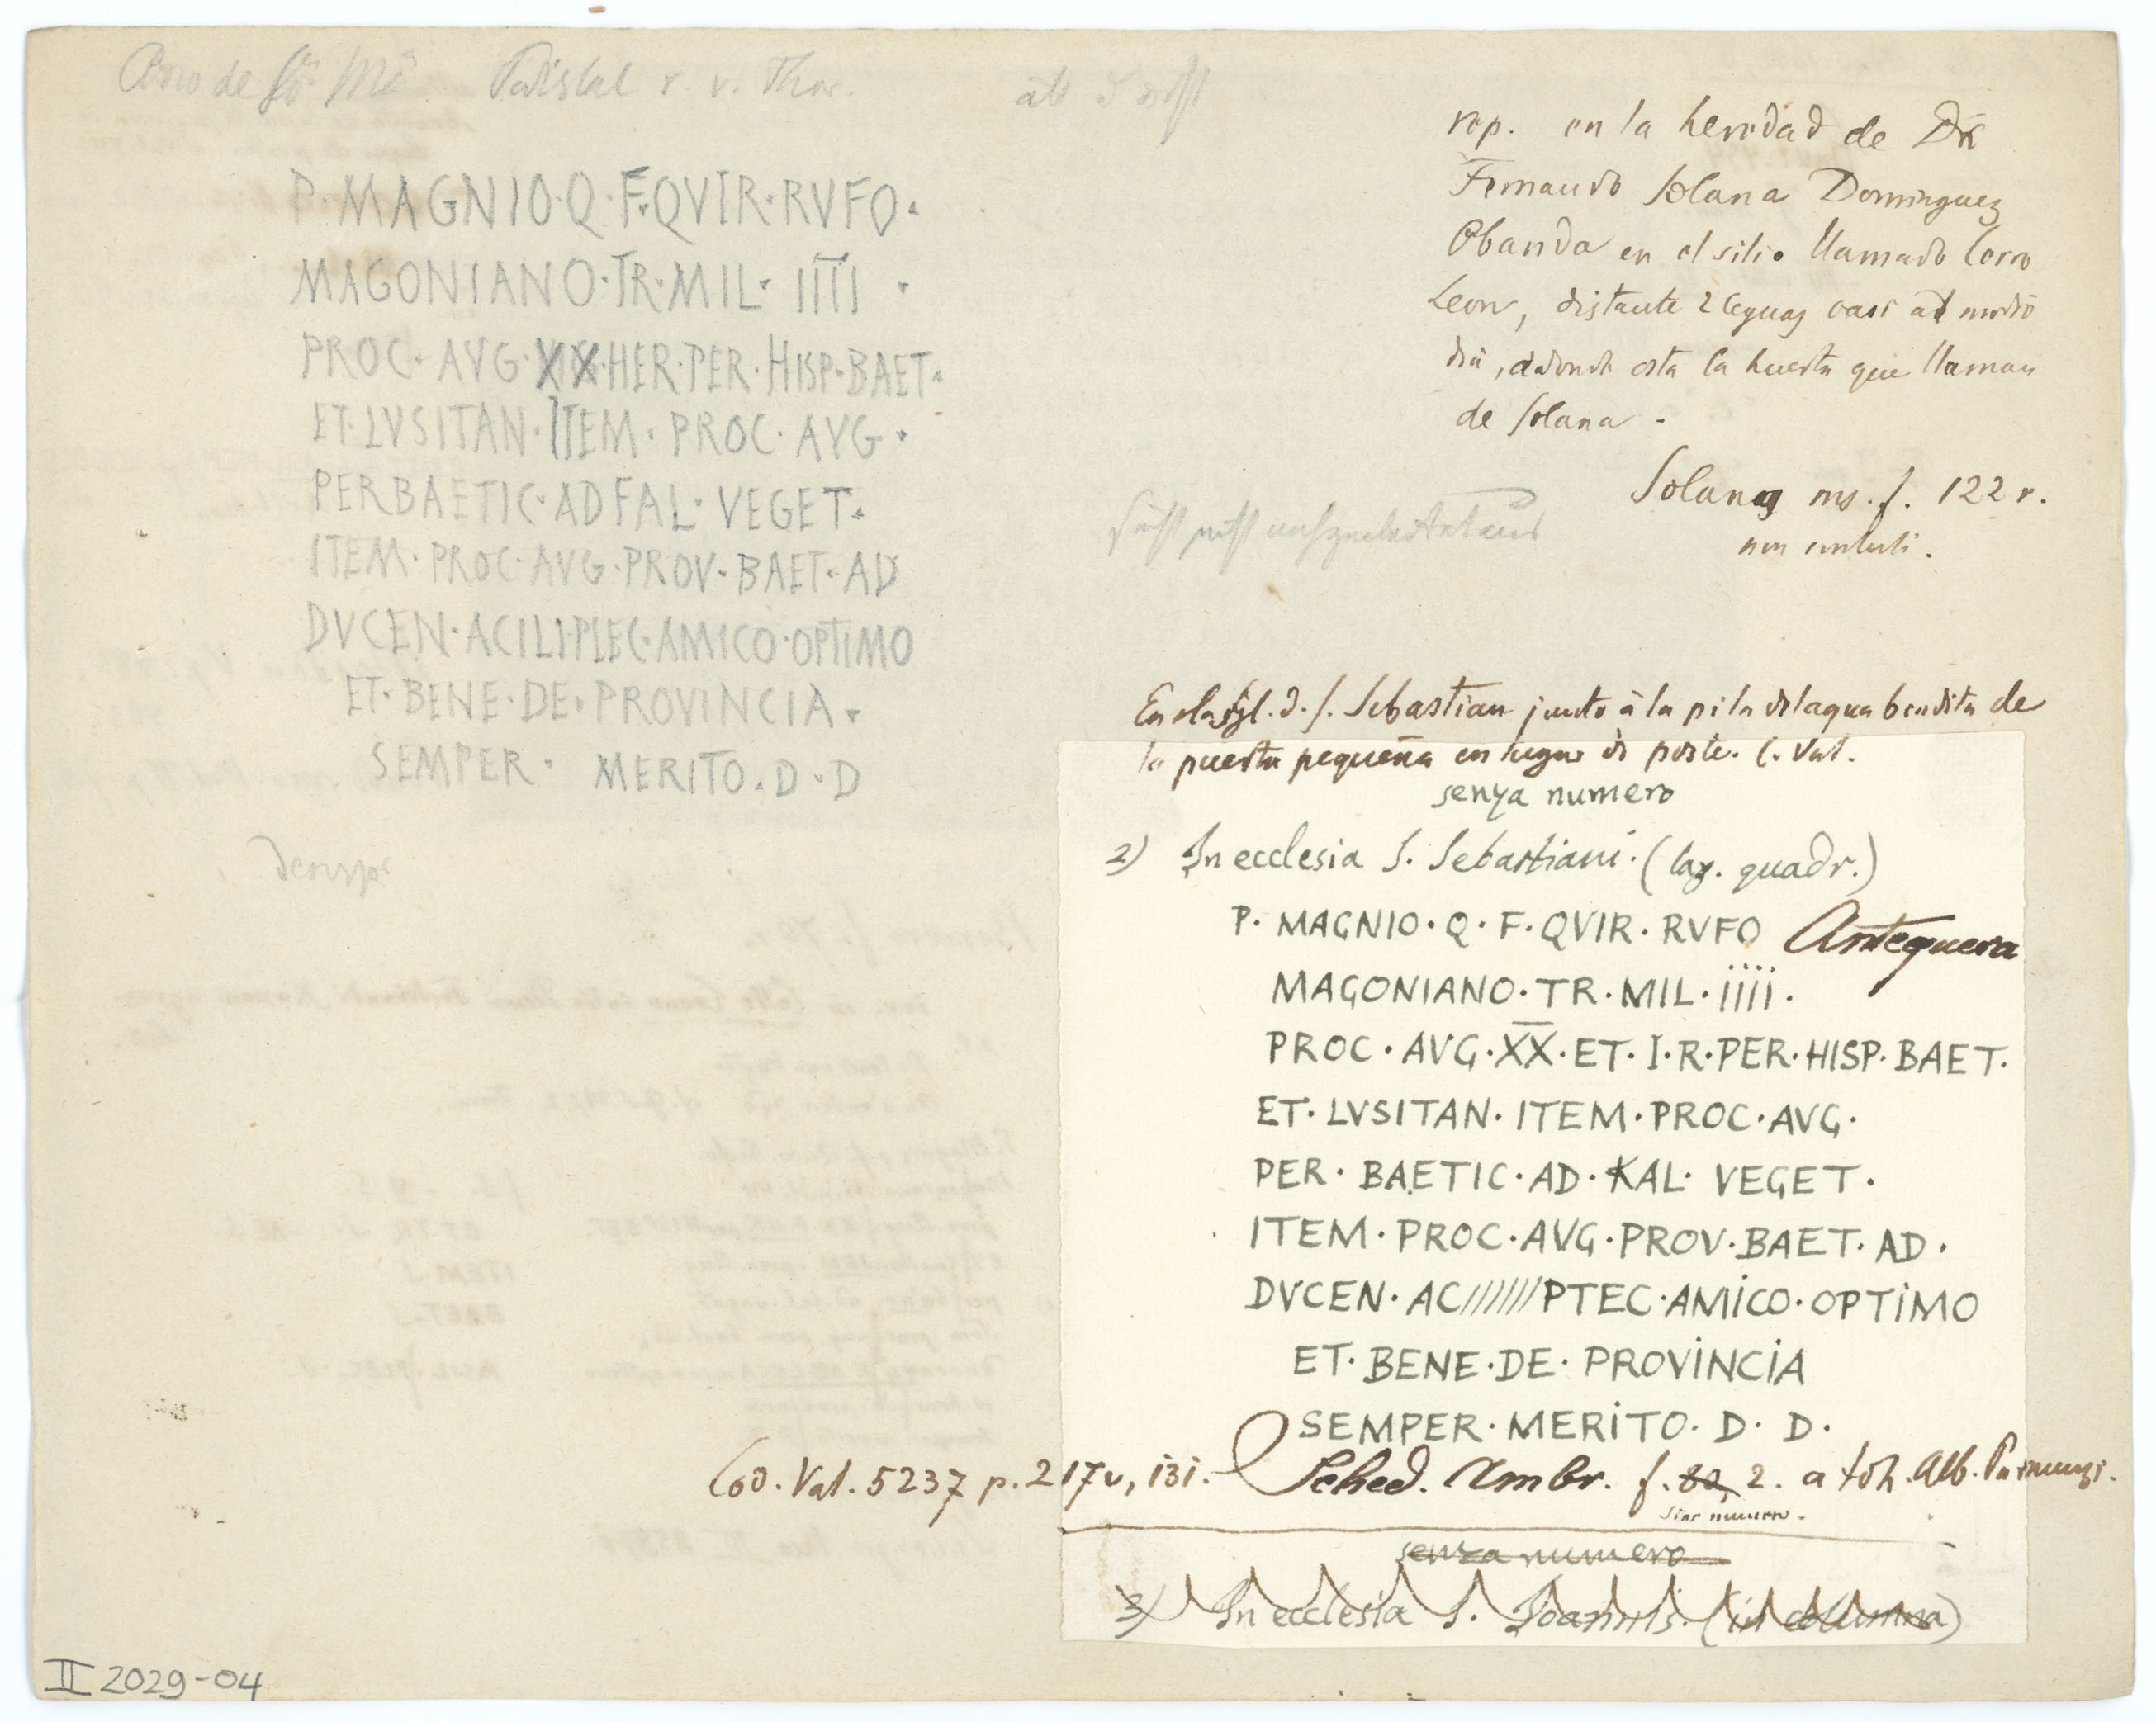 P·MAGNIO·Q·F·QVIR·RVFO·
MAGONIANO·TR·MIL· IIII ·
PROC· AVG·XX·HER·PER·HISP·BAET·
ET·LVSITAN·ITEM· PROC· AVG·
PER BAETIC·AD FAL· VEGET·
ITEM·PROC·AVG·PROV·BAET·AD
DVCEN·ACILI·PLEC·AMICO·OPTIMO
ET·BENE·DE·PROVINCIA·
SEMPER· MERITO·D·D
rep. en la heredad de
Fernando Solana Dominguez
Obanda en el sitio llamado Cerro
Leon, distante 2 leguas casi al medio
dia, adonde esta la huerta que llaman
de Solana.
Solana ms. f. 122 r.
non contuli.
S. Sebastian junto à la pila del agua bendita de
la puerta pequeña en lugar de poste. C. Val.
senza numero
2) In ecclesia S. Sebastiani. (lap. quadr.)
P. MAGNIO·Q·F·QVIR·RVFO Antequera
MAGONIANO·TR·MIL·IIII·
PROC·AVG·XX·ET·I·R·PER·HISP·BAET·
ET·LVSITAN·ITEM·PROC·AVG·
PER·BAETIC·AD·KAL·VEGET·
ITEM·PROC·AVG·PROV·BAET·AD·
DVCEN·AC///////PTEC·AMICO·OPTIMO
ET·BENE·DE·PROVINCIA
SEMPER·MERITO·D·D·
Cod. Vat. 5237 p. 217v, ibi. Sched. Ambr. f. 2. a Alb.
sine numero.
senza numero
3) In ecclesia S. Joannis. (in columna)
II 2029-04